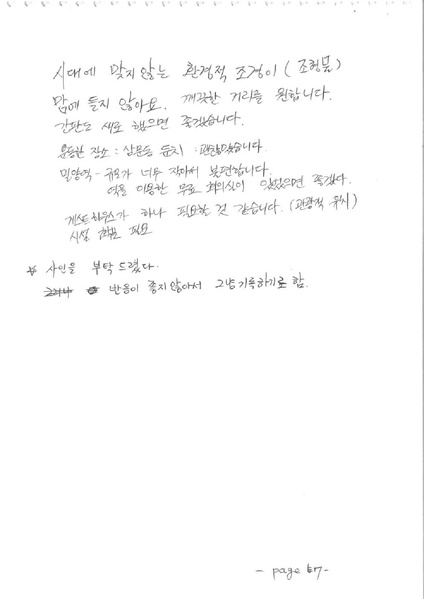 시대에 맞지 않는 환경적 조경이 (조형물)
맘에 들지 않아요. 깨끗한 거리를 원합니다.
간판도 새로 했으면 좋겠습니다.
운동한 장소 : 삼문동 둔치 : 괜찮았습니다.
밀양역 - 규모가 너무 작아서 불편합니다.
역을 이용한 무료 회의실이 있었으면 좋겠다.
게스트하우스가 하나 필요할 것 같습니다. (관광적 위치)
시설 필요
* 사인을 부탁 드렸다.
반응이 좋지 않아서 그냥 기록하기로 함.
- page 67 -